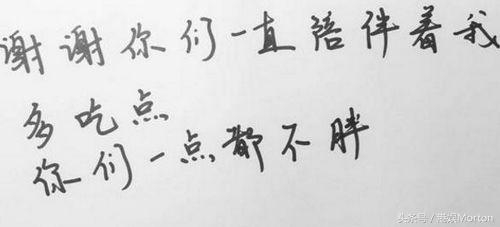 谢谢你们一直陪伴着我
多吃点
你们一点都不胖
头条号/港娱Morton